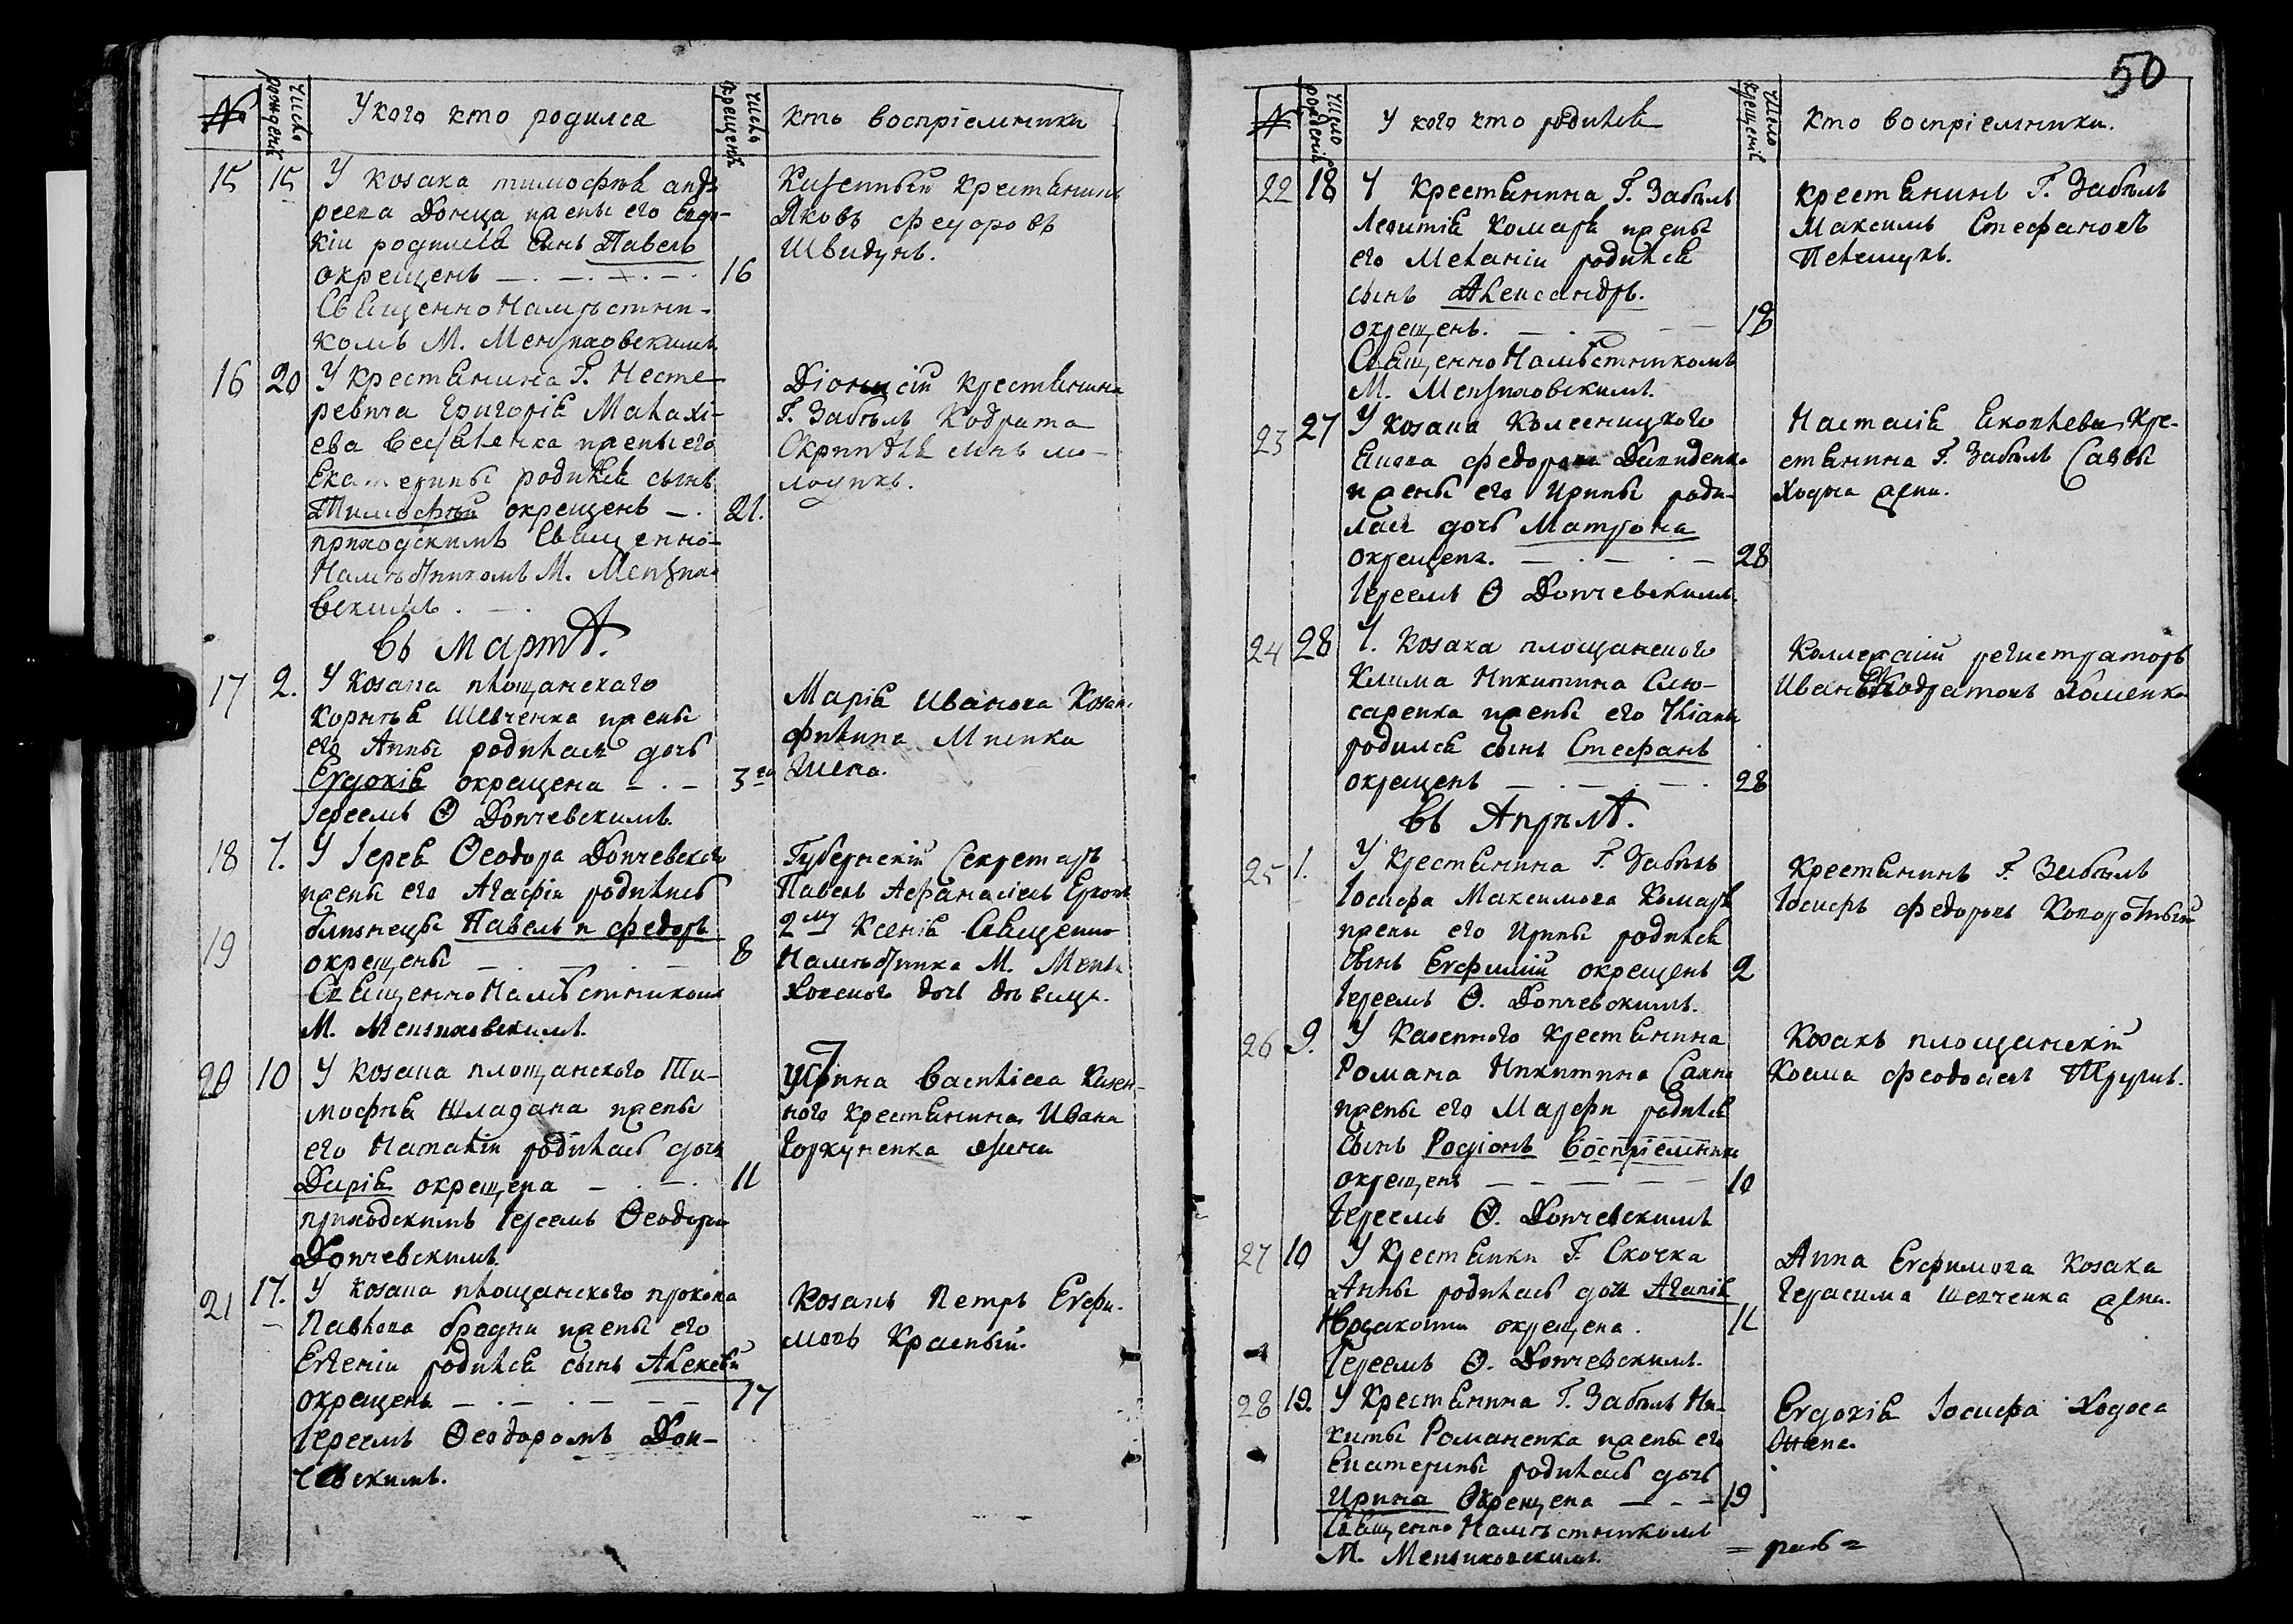 №
Число рожденій
У кого кто родился
Число крещеній
кто воспріемники
15 15 У козака тимофѣя анд-
реева Донца жены его Евдо-
кіи родился сынъ Павелъ
окрещенъ 16
Священно Намѣстни-
комъ М. Мензиховскимъ
Казенный крестянинъ
Яковъ федоровъ
Швидунъ.
16 20 У крестянина Г. Несте-
ревича Григорія Малахі-
ева жены его
Екатерины родился сынъ
Тимофей окрещенъ 21.
приходскимъ Священно-
Намѣстникомъ М. Мензихо-
вскимъ.
Діонисій крестянина
Г. Забѣлъ Кодрата
сынъ мо-
лодикъ.
въ мартѣ.
17 2. У козака площанскаго
Корнѣя Шевченка жены
его Анны родилась дочь
Евдокія окрещена 3го
Іереемъ Ѳ Дончевскимъ.
Марія Иванова Козака
жена.
18 7. У Іерея Ѳеодора Дончевского
жены его Агафіи родились
19 близнецы Павелъ и федоръ
окрещены 8
Священно Намѣстникомъ
М. Мензиховскимъ.
Губернскій Секретарь
Павелъ Афанасіевъ
2му Ксенія Священно
Намѣстника М. Мензи-
ховского дочь дѣвица.
20 10 У козака площанского Ти-
мофѣя Шладана жены
его Наталіи родилась дочь
Дарія окрещена 11
приходскимъ Іереемъ Ѳеодоромъ
Дончевскимъ.
Ирина Василіева Казен-
ного крестянина Ивана
Горкуненка жена
21 17. У козака площанского прокопа
Павлова жены его
Евгеніи родился сынъ Алексѣй
окрещенъ 17
Іереемъ Ѳеодоромъ Дон-
чевскимъ.
Козакъ Петръ Евфи-
мовъ Красный.
50
№
Число рожденій
У кого кто родился
Число крещеній
Кто воспріемники.
22 18 У крестянина Г. Забѣлъ
Леонтія Комаря жены
его Меланіи родился
сынъ Александръ.
окрещенъ. 18
Священно Намѣстникомъ
М. Мензиховскимъ.
крестянинъ Г. Забѣлъ
Максимъ Стефановъ
23 27 У козака Колесницкого
Якова федорова Давиденка
жены его Ирины роди-
лась дочь Матрона
окрещена. 28
Іереемъ Ѳ Дончевскимъ.
Настасія Яковлева Кре-
стянина Г. Забѣлъ Саввы
Ходоса жена.
24 28 У козака площанского
Клима Никитина Слю-
саренка жены его
родился сынъ Стефанъ
окрещенъ 28
Коллежскій регистраторъ
Иванъ Кодратовъ Хоменко
въ Апрѣлѣ.
25 1. У Крестянина Г. Забѣлъ
Іосифа Максимова Комаря
жены его Ирины родился
сынъ Евфимій окрещенъ 2
Іереемъ Ѳ. Дончевскимъ.
Крестянинъ Г. Забѣлъ
Іосифъ федоровъ
26 9. У Казенного крестянина
Романа Никитина
жены его Марфы родился
сынъ Родіонъ Воспріемники
окрещенъ 10
Іереемъ Ѳ. Дончевскимъ
Козакъ площанскій
Косма феодосіевъ
27 10 У Крестянки Г. Скочка
Анны родилась дочь Агапія
окрещена. 11
Іереемъ Ѳ. Дончевскимъ.
Анна Евфимова козака
Герасима Шевченка жена.
28 19. У Крестянина Г. Забѣлъ Ни-
киты Романенка жены его
Екатерины родилась дочь
Ирина Окрещена 19
Священно Намѣстникомъ
М. Мензиховскимъ.
Евдокія Іосифа Ходоса
жена.